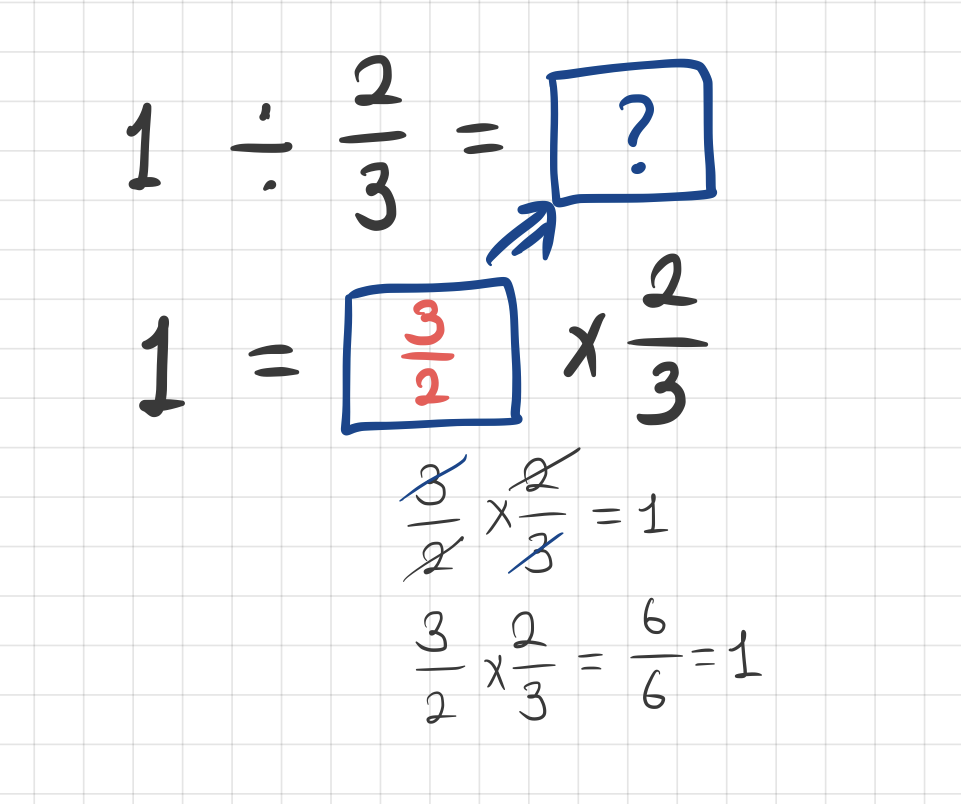 1 ÷ 2/3 = ?
1 = 3/2 × 2/3
3/2 × 2/3 = 1
3/2 × 2/3 = 6/6 = 1